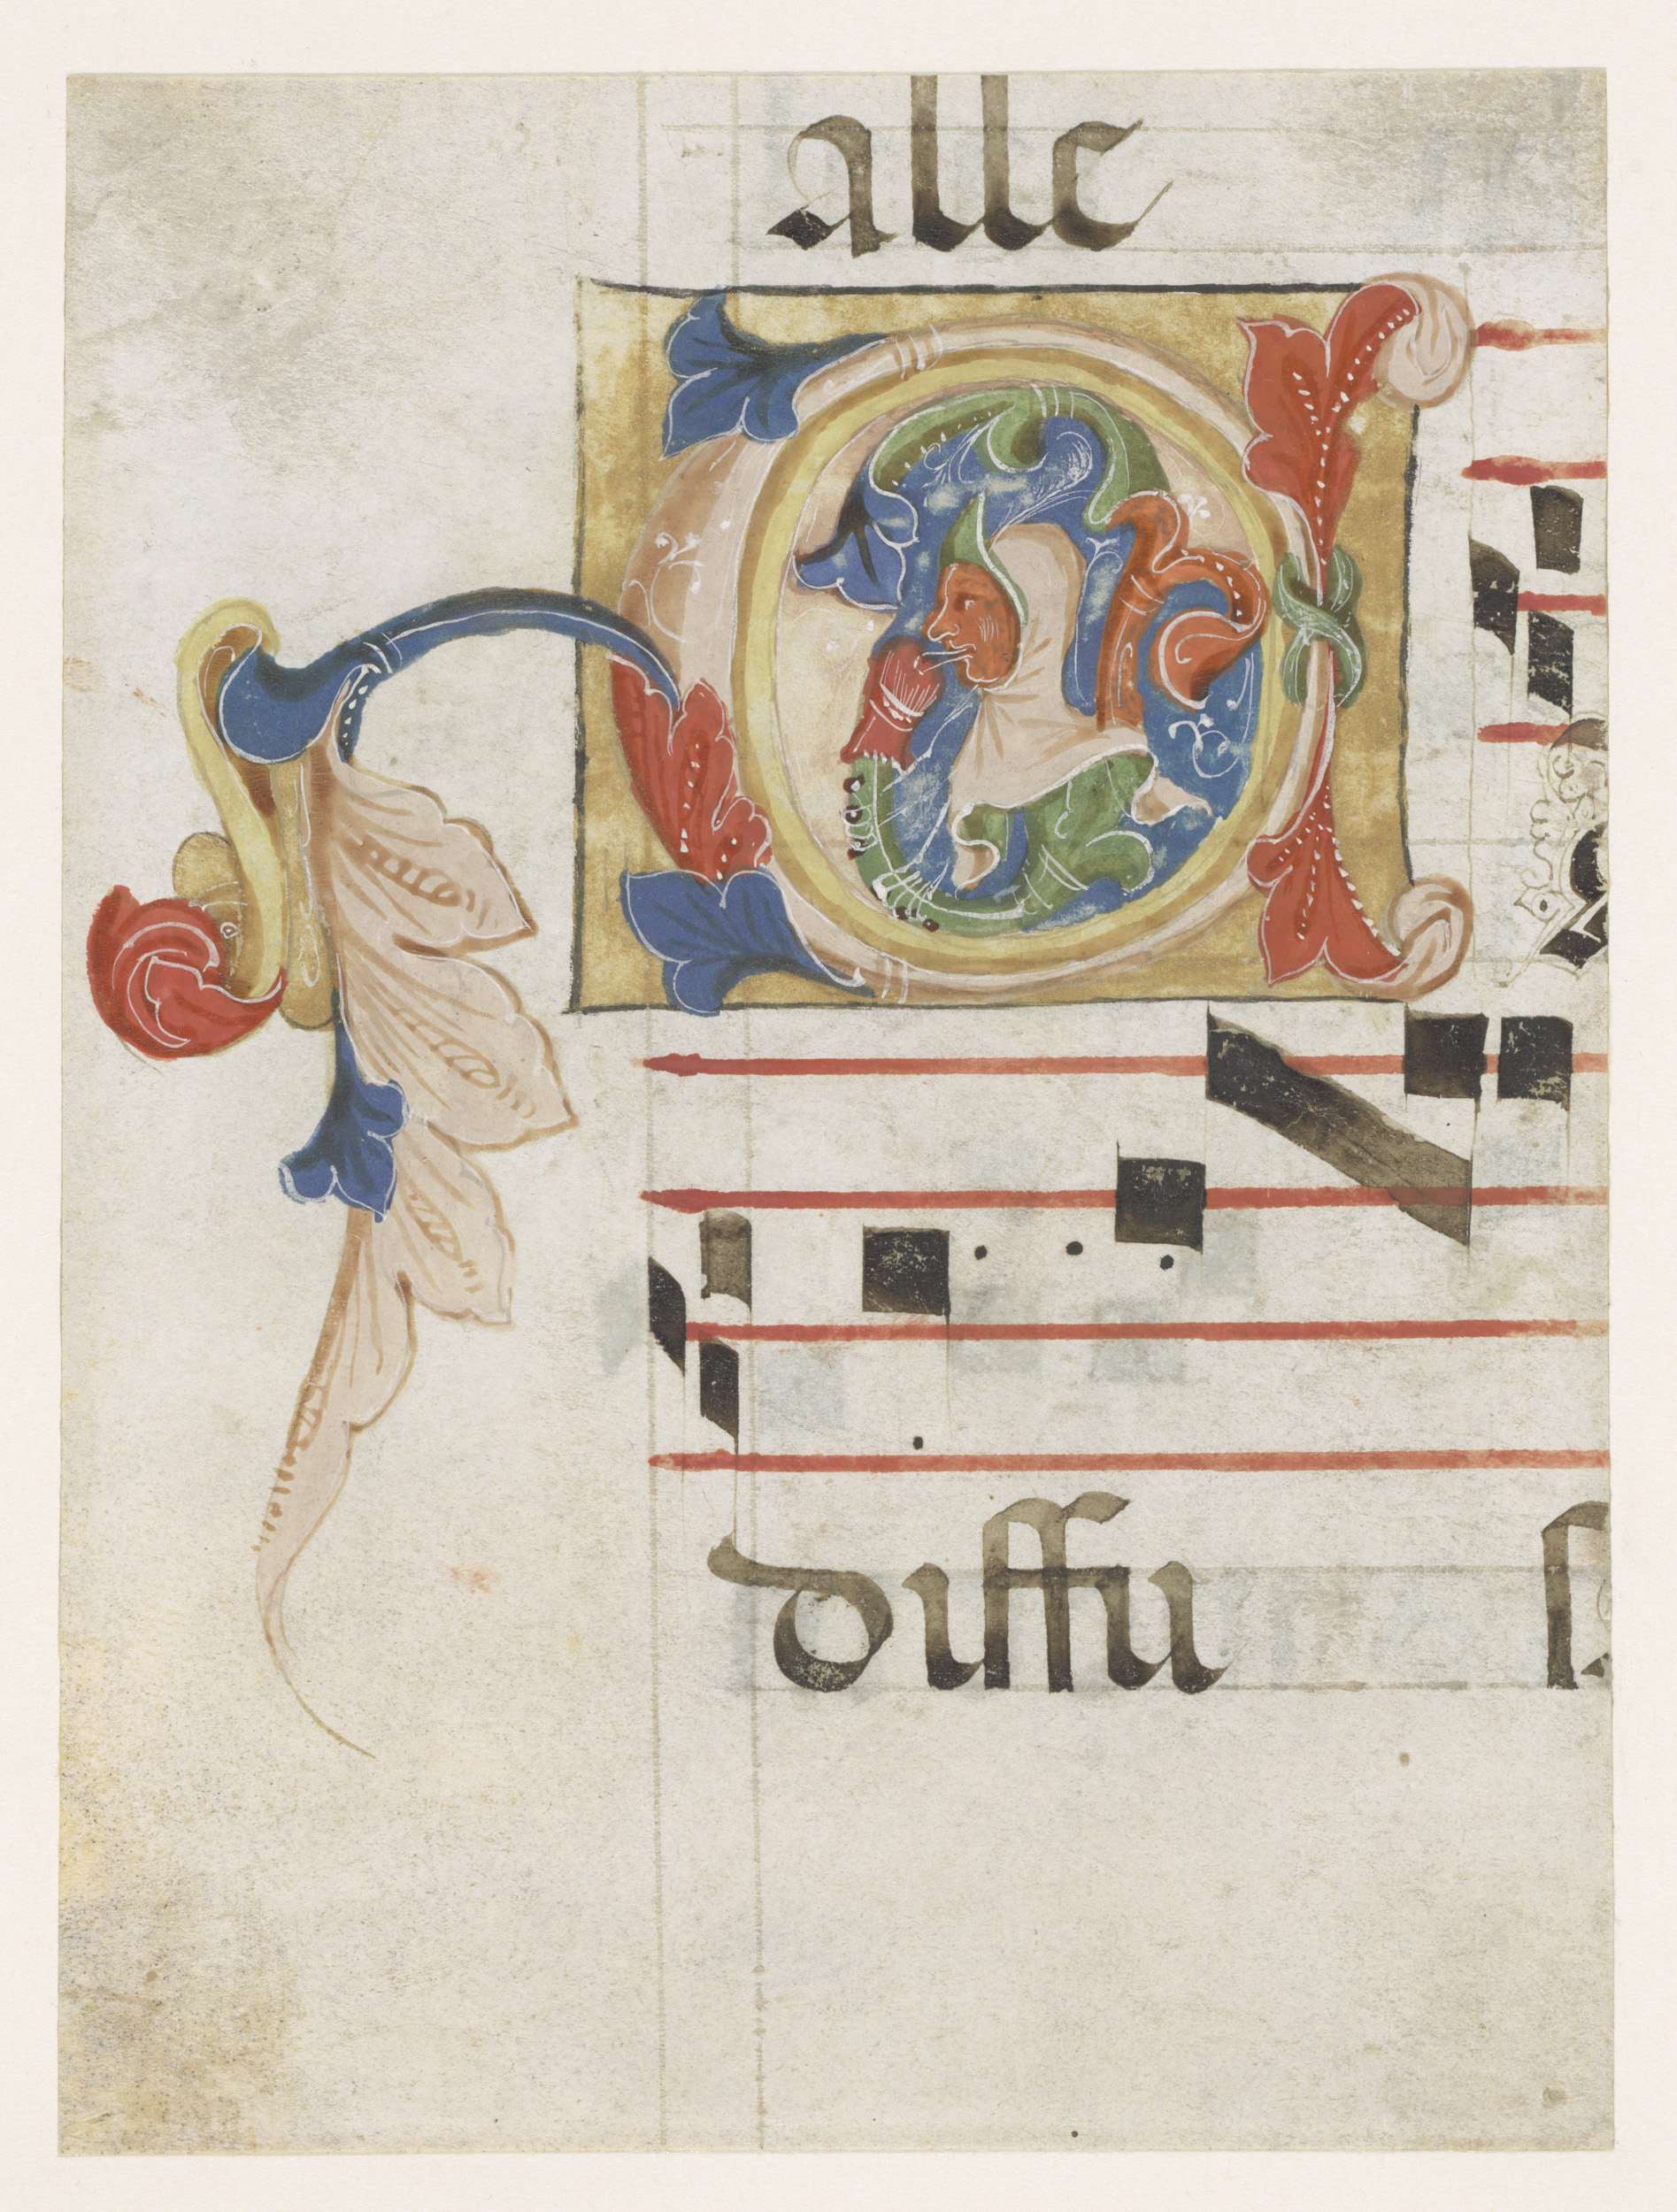 alle
C
diffu s